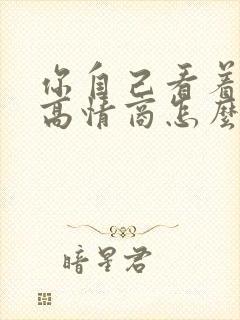 你自己看着
高情商怎麼
暗星君